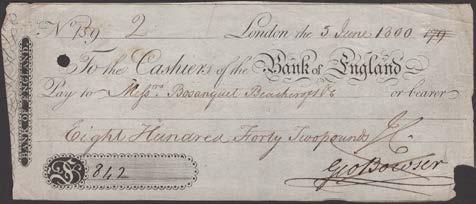 No 159 2 London the 3 June 1800 179
To the Cashiers of the Bank of England
Pay to Messrs Bosanquet Beachcroft & Co or bearer
Eight Hundred Forty Two pounds
£ 842
Geo Bowser
BANK OF ENGLAND.